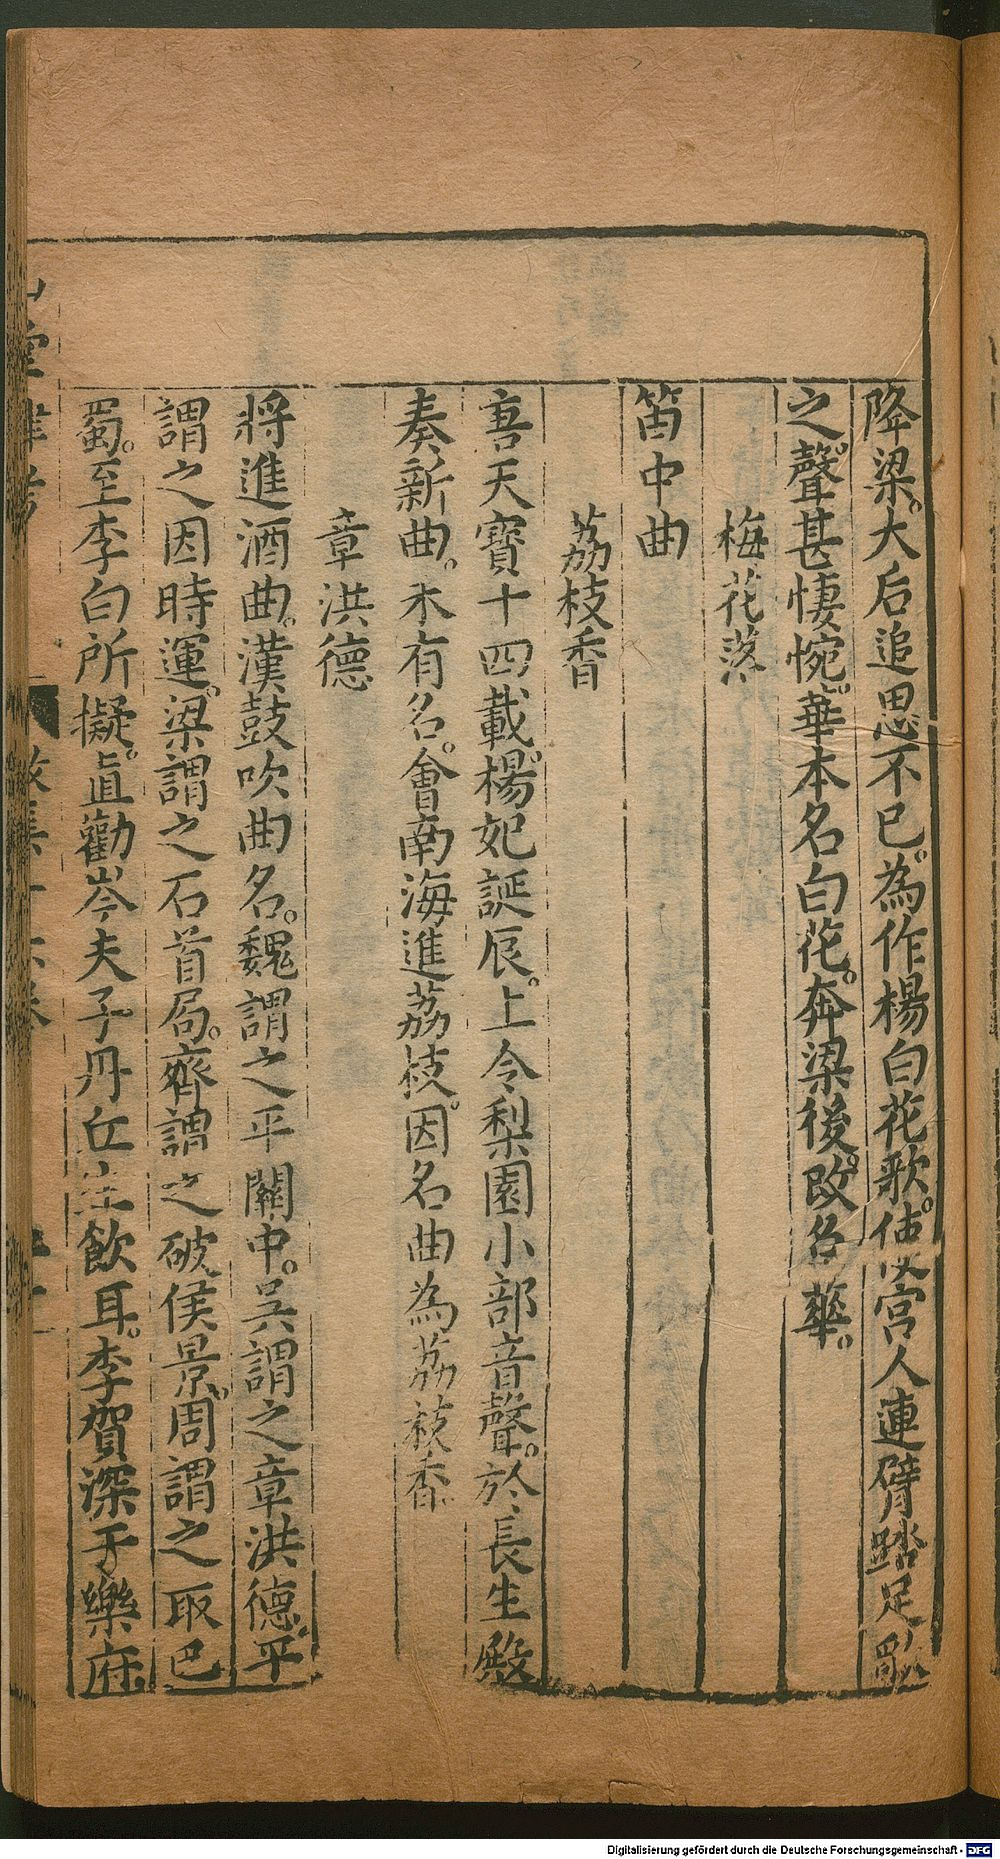 降梁。大后追思不已。為作楊白花歌。使宮人連臂踏足
之聲甚悽惋。華本名白花。奔梁後。改名華。
梅花落
笛中曲
荔枝香
唐天寶十四載。楊妃誕辰。上令梨園小部音聲。於長生殿
奏新曲。木有名。會南海進荔枝。因名曲為荔枝香
章洪德
將進酒曲。漢鼓吹曲名。魏謂之平關中。吳謂之章洪德。平
謂之因時運。梁謂之石首局。齊謂之破侯景。周謂之取巴
蜀。至李白所擬。直勸岑夫子丹丘生飲耳。李賀深于樂府
Digitalisierung gefördert durch die Deutsche Forschungsgemeinschaft - DFG